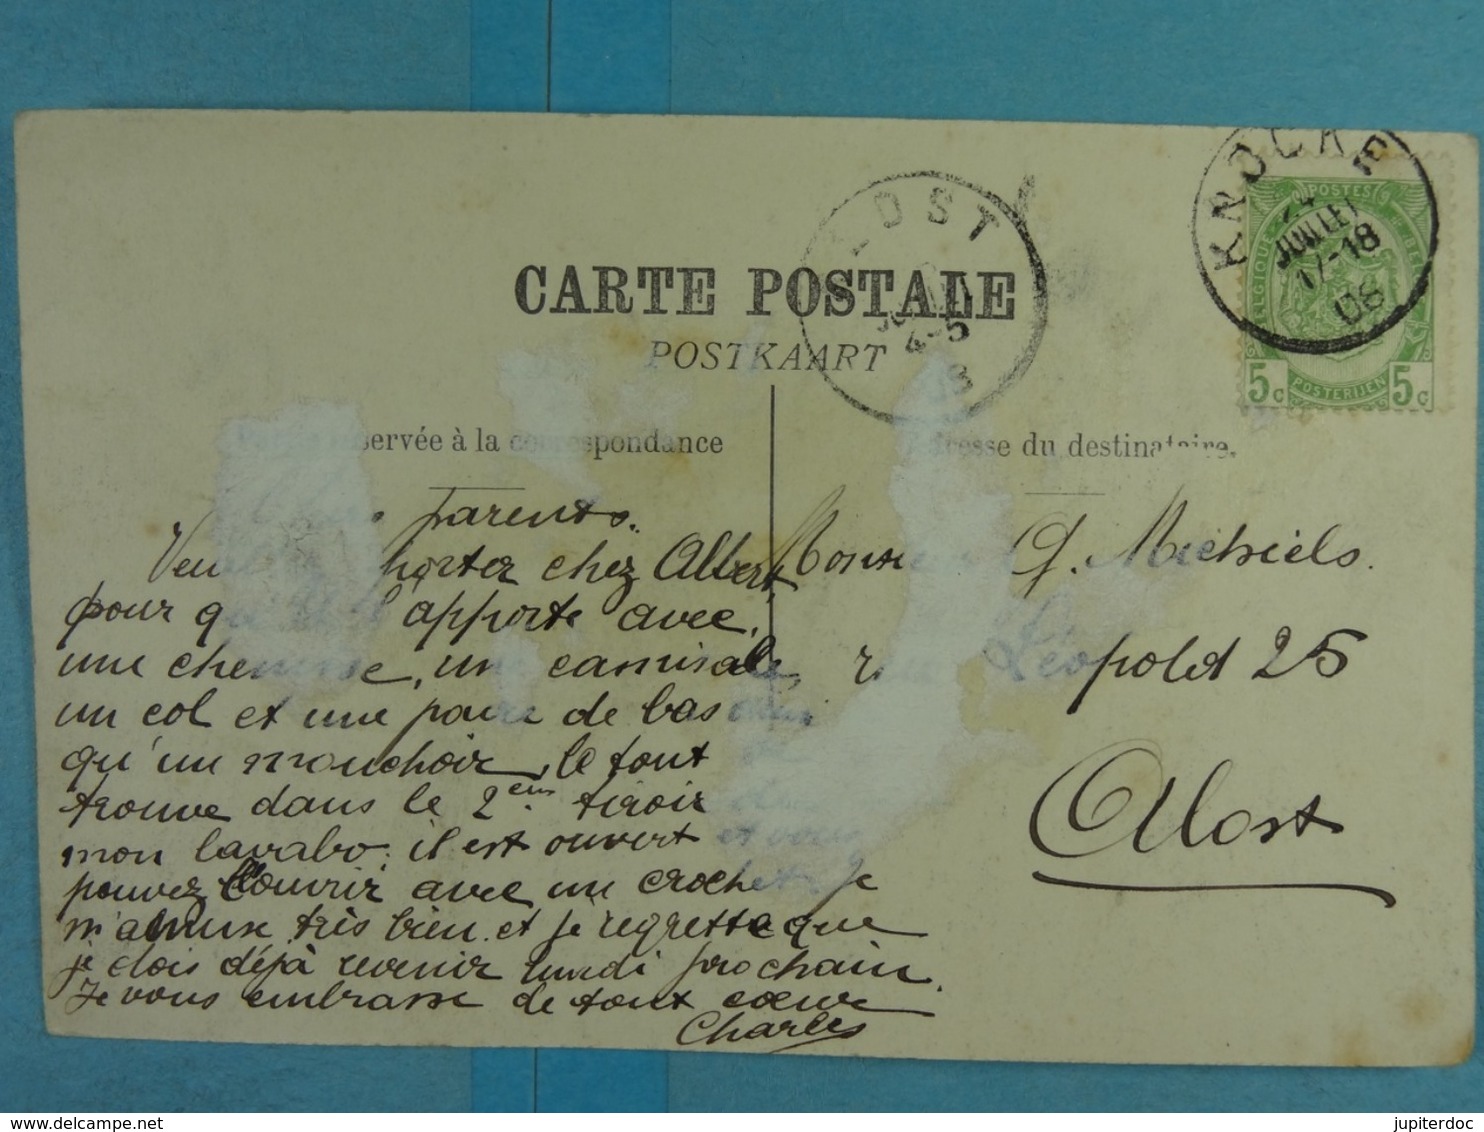 KNOCKE
24
JUILLET
17-18
08
POSTES
BELGIQUE
5c POSTERIJEN 5c
LOST
4-5
CARTE POSTALE
POSTKAART
servée à la correspondance
Adresse du destinataire.
parents.
porter chez Albert,
pour l'apporte avec,
une chemise, une camisole,
un col et une paire de bas
qu'un mouchoir, le tout
trouve dans le 2em tiroir
mon lavabo. il est ouvert et vous
pouvez l'ouvrir avec un crochet. Je
m'amuse très bien et je regrette que
je dois déjà revenir lundi prochain.
Je vous embrasse de tout cœur
Charles
G. Michiels.
Léopold 25
Alost
jupiterdoc